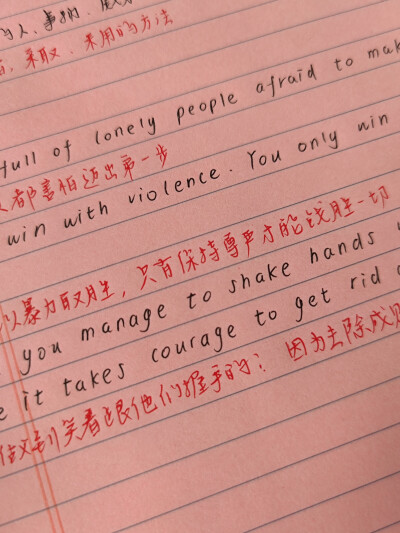 的人、事物、
采取、采用的方法
full of lonely people afraid to mak
都害怕迈出第一步
win with violence. You only win
以暴力取胜，只有保持尊严才能战胜一切
you manage to shake hands
it takes courage to get rid
做到笑着跟他们握手的；因为去除成见